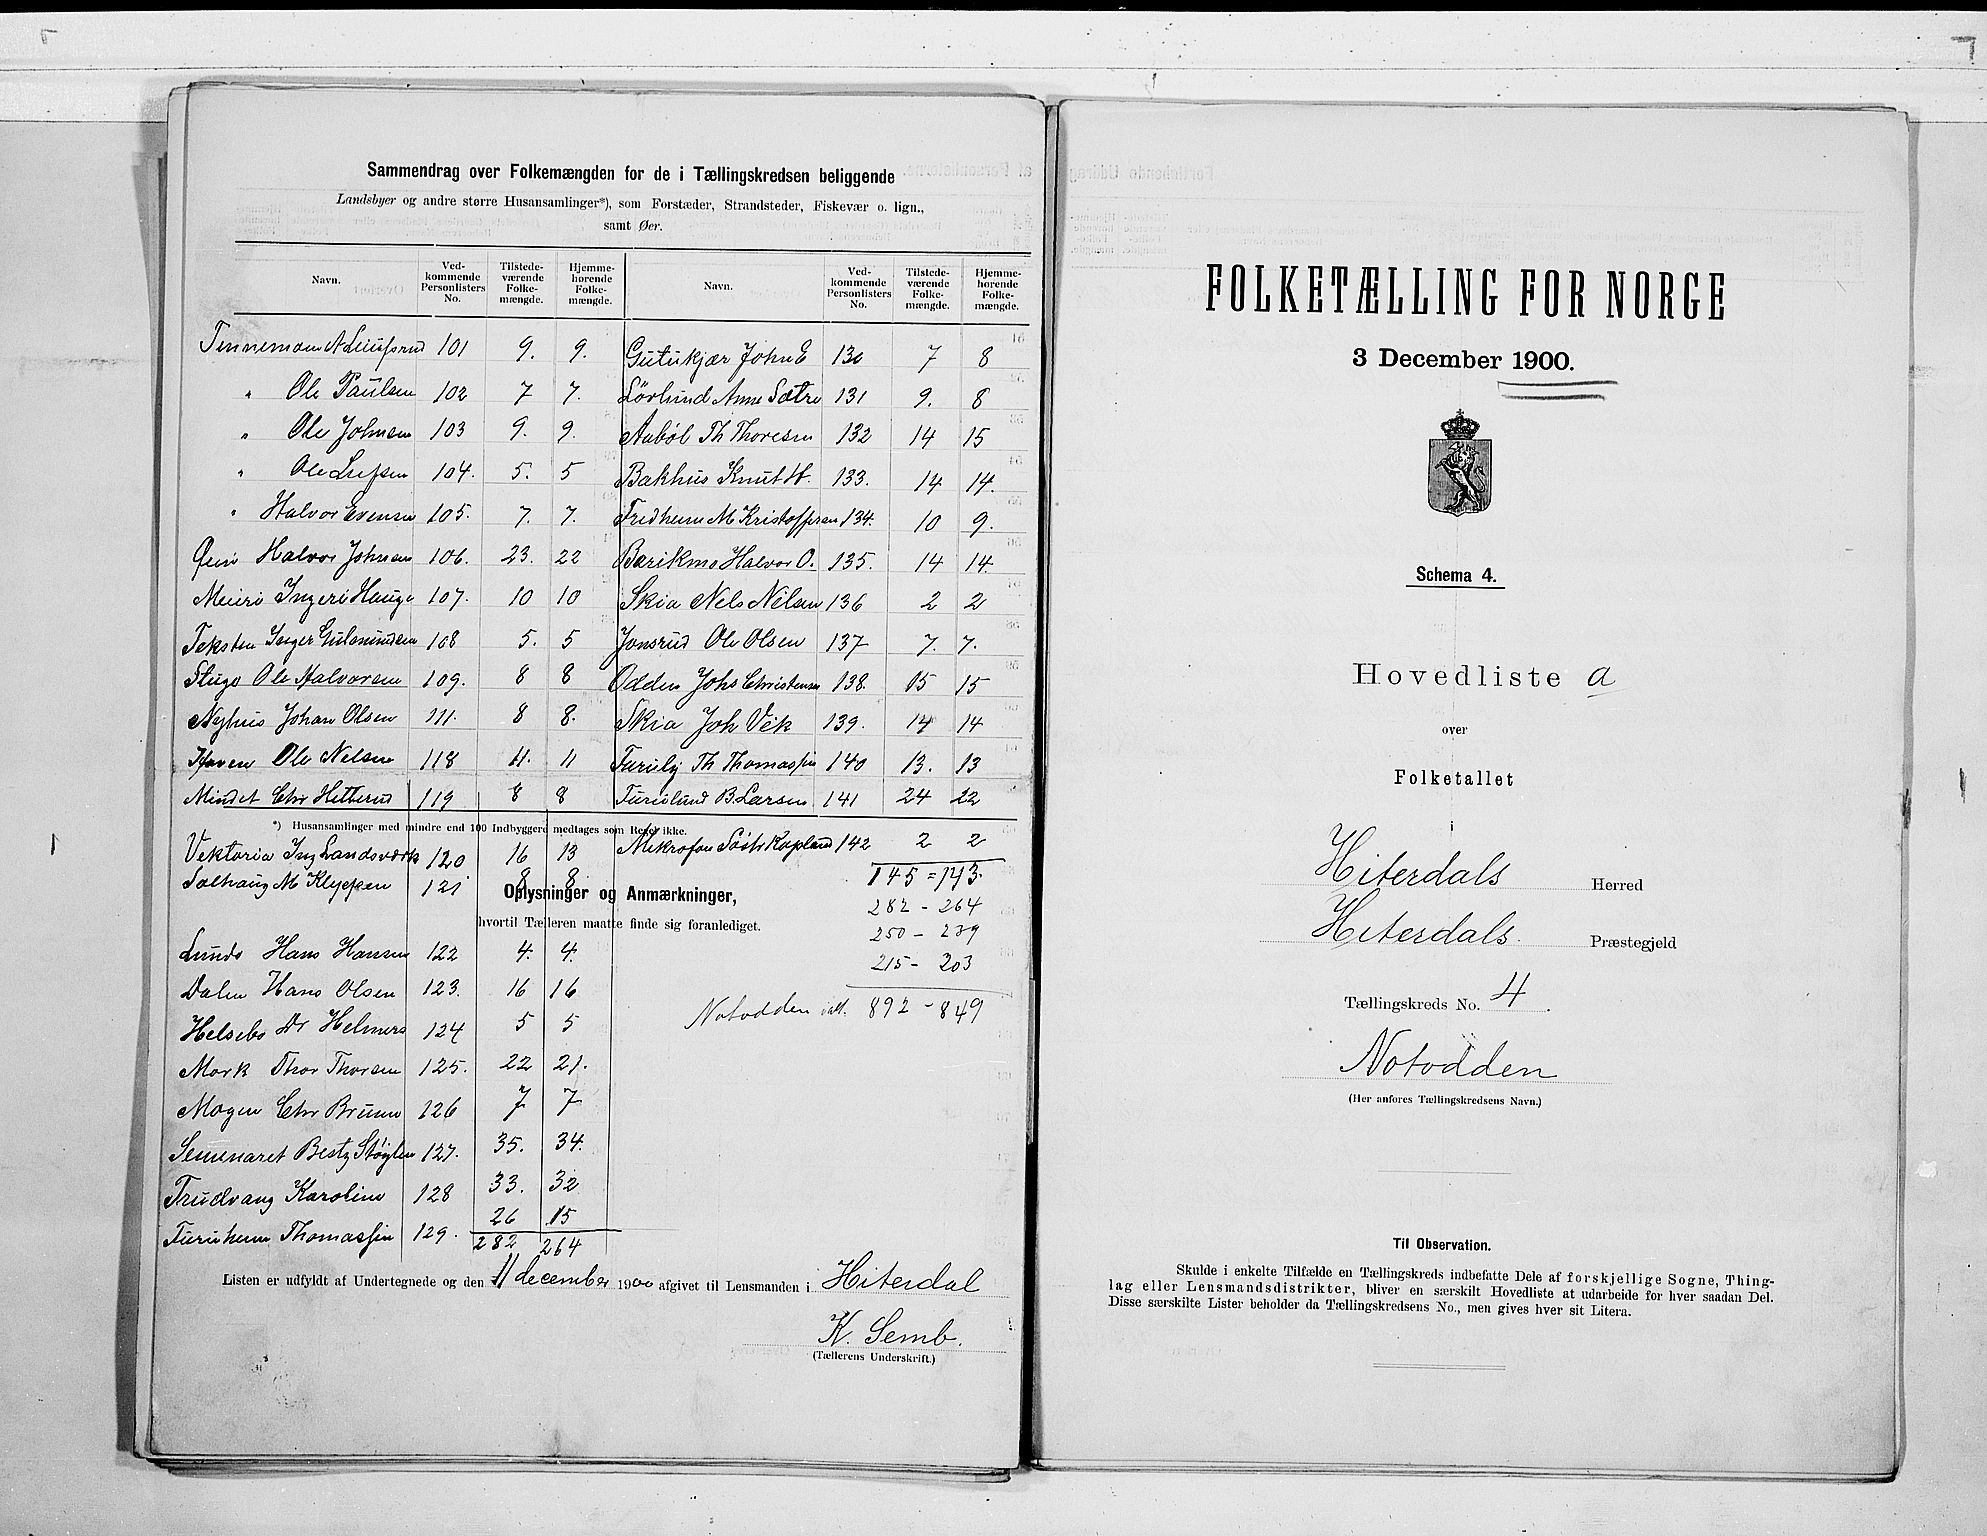 Sammendrag over Folkemængden for de i Tællingskredsen beliggende
Landsbyer og andre større Husansamlinger*), som Forstæder, Strandsteder, Fiskevær o. lign.,
samt Øer.
Navn. Vedkommende Personlisters No. Tilstedeværende Folkemængde. Hjemmehørende Folkemængde.
Tinnemoen 101 9. 9.
" Ole Paulsen 102 7 7.
" Ole Johnsen 103 9. 9.
" Ole 104. 5. 5
" Halvor Evensen 105. 7. 7.
Halvor Johnsen 106. 23. 22
Meieri Ingeri Hauge 107. 10 10
Teksten Inger Gulmundsen 108 5. 5
Stugo Ole Halvorsen 109. 8 8
Nyhus Johan Olsen 111. 8 8.
Haven Ole Nelsen 118 11. 11
Mindet Chr Hitterud 119 8 8
Navn. Vedkommende Personlisters No. Tilstedeværende Folkemængde. Hjemmehørende Folkemængde.
Gutukjær John E 130 7 8
Lövlund Anne Sætre 131 9. 8
Aaböl Th Thoresen 132 14 15
Bakhus Knut H. 133. 14 14.
Fredheim M Kristoffersen 134. 10 9.
Halvor O. 135. 14 14.
Skia Nels Nelsen 136 2 2
Jonsrud Ole Olsen 137 7. 7.
Odden Johs Christensen 138. 15 15
Skia Joh Vik 139. 14 14
Furuly Th Thomassen 140 13. 13
Furulund B. Larsen 141 24 22
*) Husansamlinger med mindre end 100 Indbyggere medtages som Regel ikke.
Vektoria Ing Landsværk 120 16 13
Solhaug M Klyppen 121 8 8
Mikrofon 142 2 2
145 = 143.
282 - 264
250 - 239
215 - 203
Notodden ialt. 892 - 849
Oplysninger og Anmærkninger,
hvortil Tælleren maatte finde sig foranlediget.
Lunde Hans Hansen 122 4. 4.
Dalen Hans Olsen 123. 16 16
Helsebo Dr Helmers 124 5 5
Mork Thor Thorsen 125. 22 21.
Mogen Chr Bruun 126 7 7
Semenaret Besty Støylen 127. 35. 34.
Trudvang Karoline 128 33. 32
Furuheim Thomassen 129. 26 15
282 264
Listen er udfyldt af Undertegnede og den 11 december 1900 afgivet til Lensmanden i Hiterdal
K. Semb.
(Tællerens Underskrift.)
FOLKETÆLLING FOR NORGE
3 December 1900.
Schema 4.
Hovedliste a
over
Folketallet
i
Hiterdals Herred
Hiterdals. Præstegjeld
Tællingskreds No. 4.
Notodden
(Her anføres Tællingskredsens Navn.)
Til Observation.
Skulde i enkelte Tilfælde en Tællingskreds indbefatte Dele af forskjellige Sogne, Thing-
lag eller Lensmandsdistrikter, bliver en særskilt Hovedliste at udarbeide for hver saadan Del.
Disse særskilte Lister beholder da Tællingskredsens No., men gives hver sit Litera.